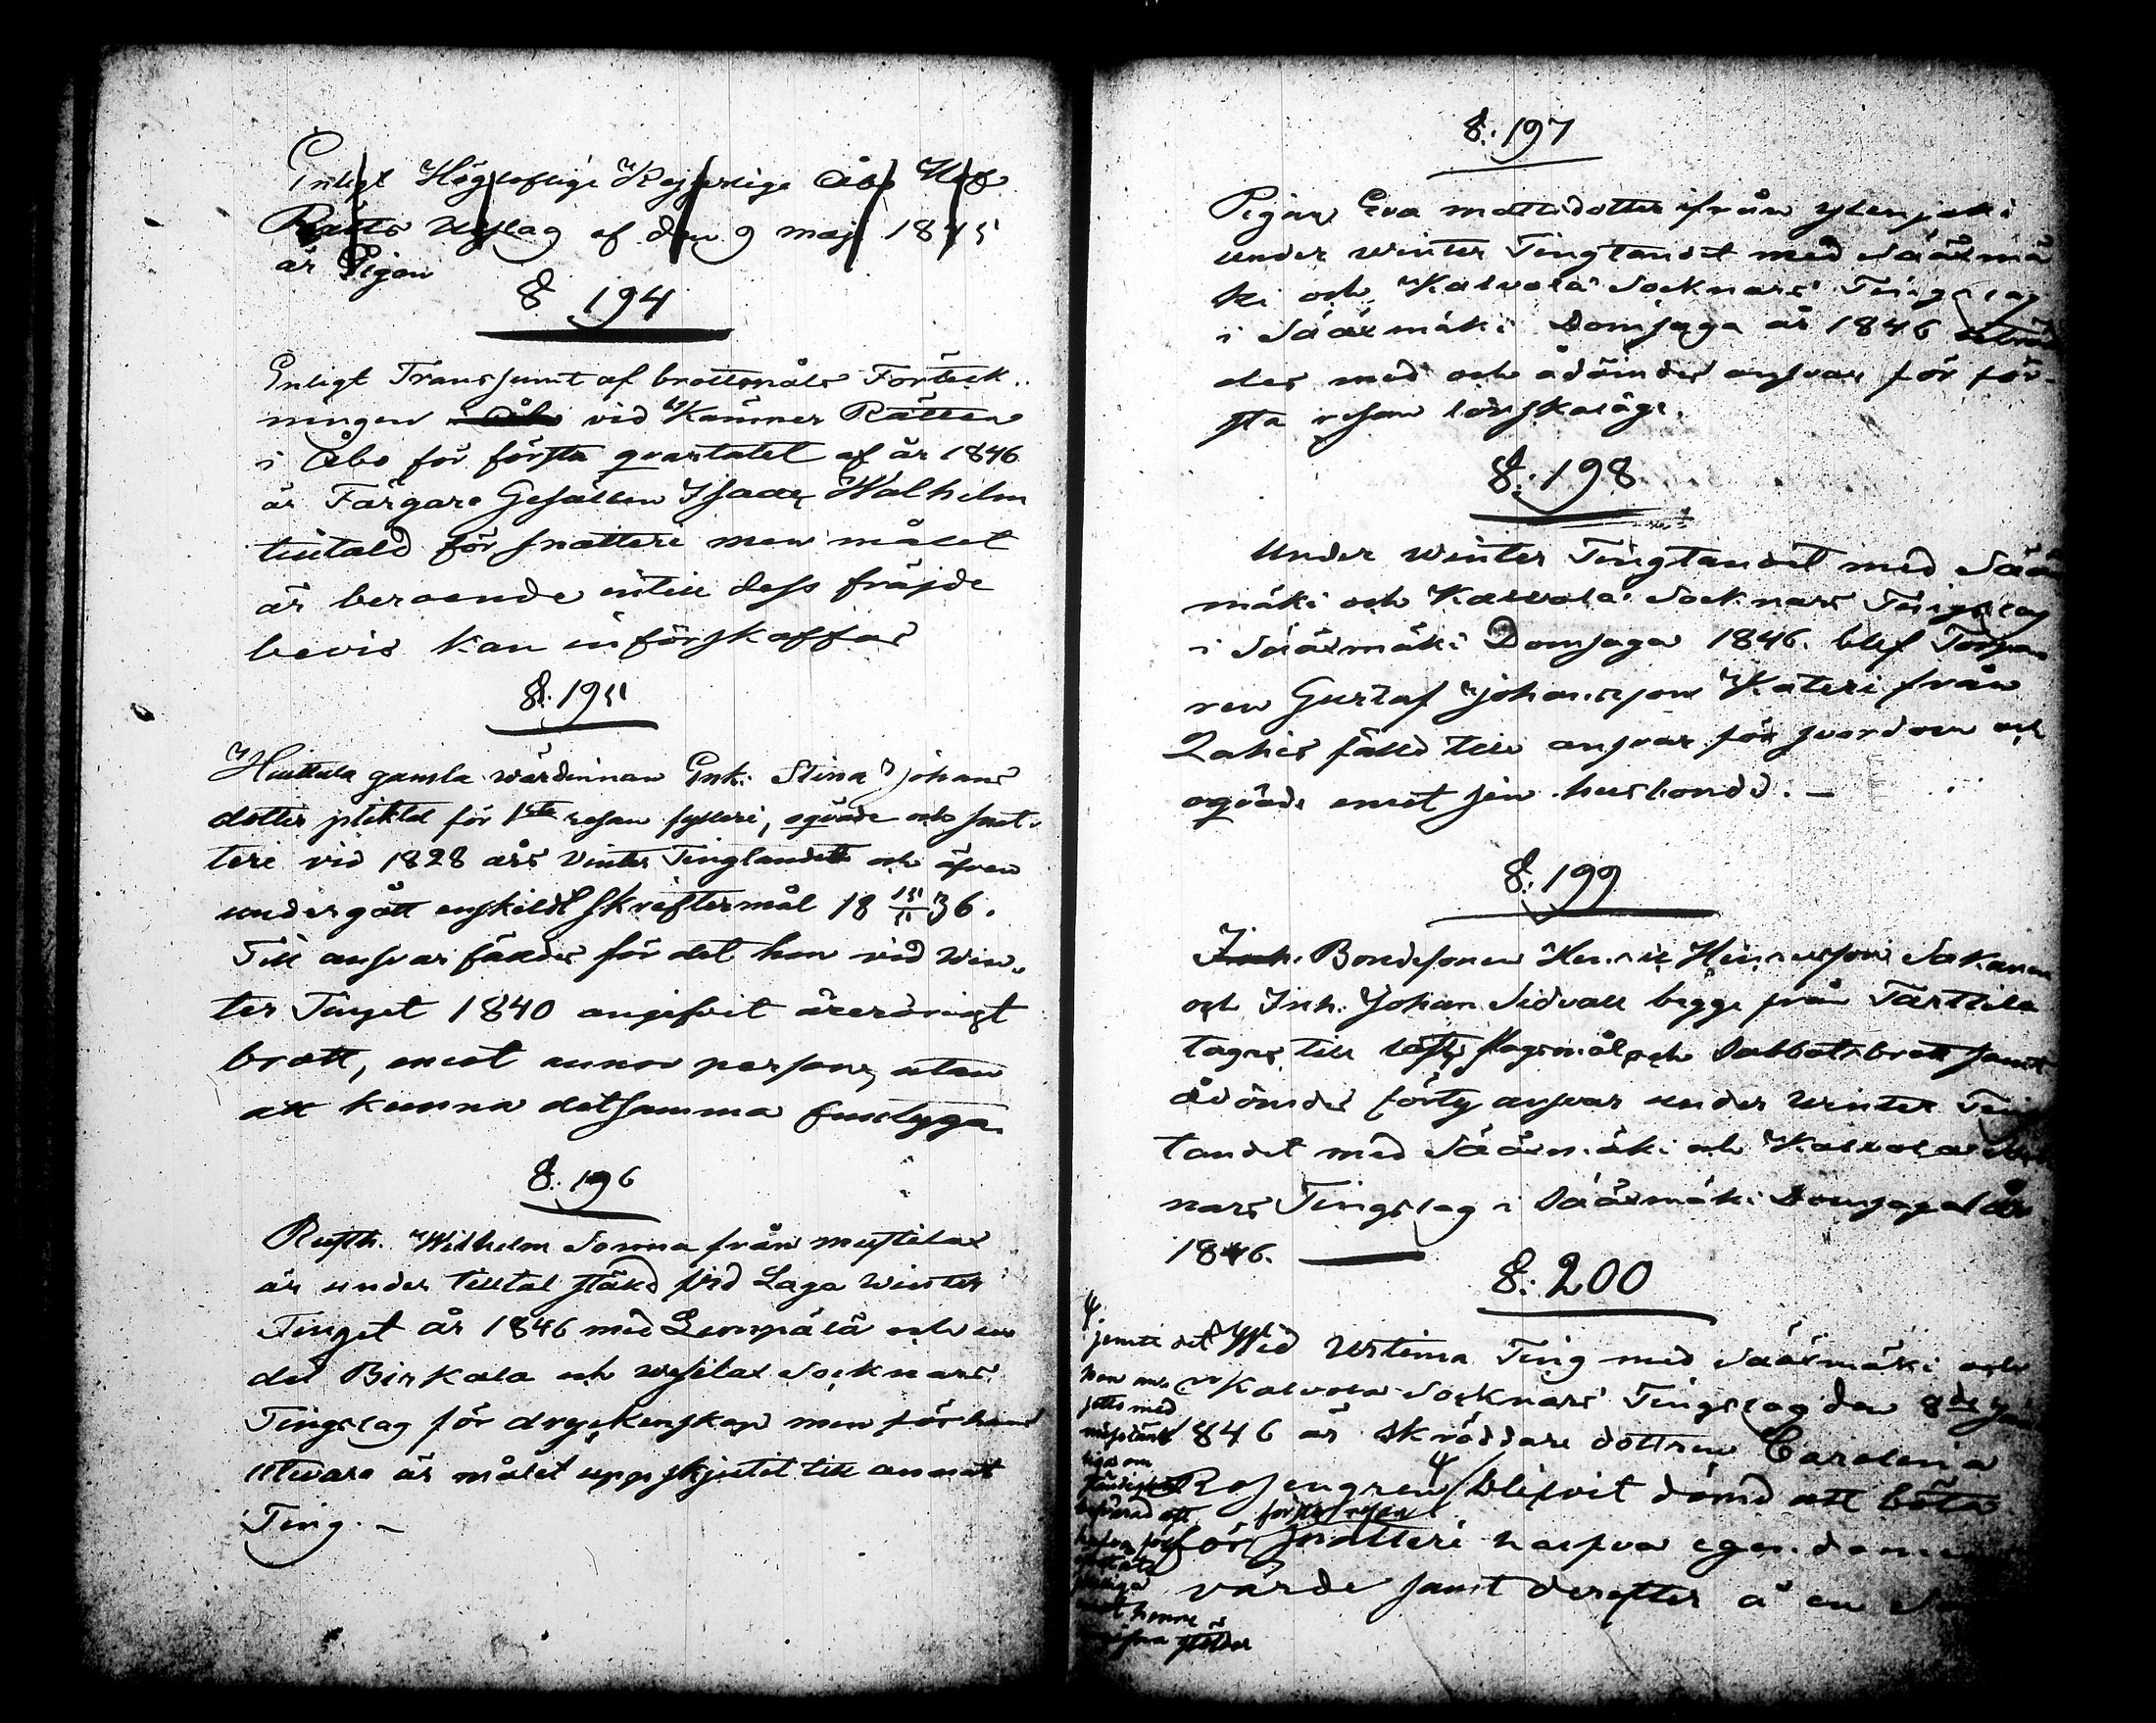 Enligt Höglofliga Kejserliga Åbo Hof
Rätts Utslag af den 9 maj 1845
är Pigan
§ 194
Enligt Transsumt af brottmåls Förteck-
ningen vid Kämner Rätten
i Åbo för första qvartalet af år 1846
är Färgare Gesällen Isaac Walhelm
tilltald för snatteri men målet
är beroende intill dess fräjde
bevis kan införskaffas
§. 195
Huittula gamla wärdinnan Enk. Stina Johans
dotter pliktat för 1sta resan fylleri, oqväde och snat-
teri vid 1828 års Vinter Tinglandet och äfven
undergått enskildt skriftermål 18 15/11 36.
Till ansvar fäldes för det hon vid Win-
ter Tinget 1840 angifvit ärerörigt
brott, emot annor person, utan
att kunna detsamma fulltyga.
§. 196
Rusth. Wilhelm Sorma från mustilax
är under tilltal stäld vid Laga Winter
Tinget år 1846 med Lempälä och
del Birkala och wesilax Socknars
Tingslag för dryckenskap men för hans
utevaro är målet uppskjutet till annat
Ting. -
§. 197
Pigan Eva mattsdotter ifrån ylenjoki
under winter Tingtandet med Sääxmä
ki och Kalvola Socknars Tingslag
i Sääxmäki Domsaga år 1846
des med och ådömdes ansvar för för-
sta resan lönskaläge.
§. 198
Under winter Tingtandet med Sääx
mäki och Kalvola Socknars Tingslag
i Sääxmäki Domsaga 1846. blef Torpa
ren Gustaf Johansson Kateri från
Lahis fälld till ansvar för svordom och
oqväde emot sin husbonde. -
§. 199
Inh. Bondesonen Henric Henricsson Sakanen
och Inh. Johan Sidvall begge från Tarttila
tagne till slagsmål och Sabbatsbrott samt
ådömdes förty ansvar under winter Ting
tandet med Sääxmäki och Kalvola Sock
nars Tingslag i Sääxmäki Domsaga år
1846.
§. 200
Wid Urtima Ting med Sääxmäki och
Kalvola Socknars Tingslag den 8de
1846 är skräddare dottren Carolina
Rosengren blifvit dömd att böta
första resan
för snatteri halfva egendomens
värde samt derefter å en
jemte det
hon
med
misstänk
liga om
ständighet
att
hafva
henne
stölder